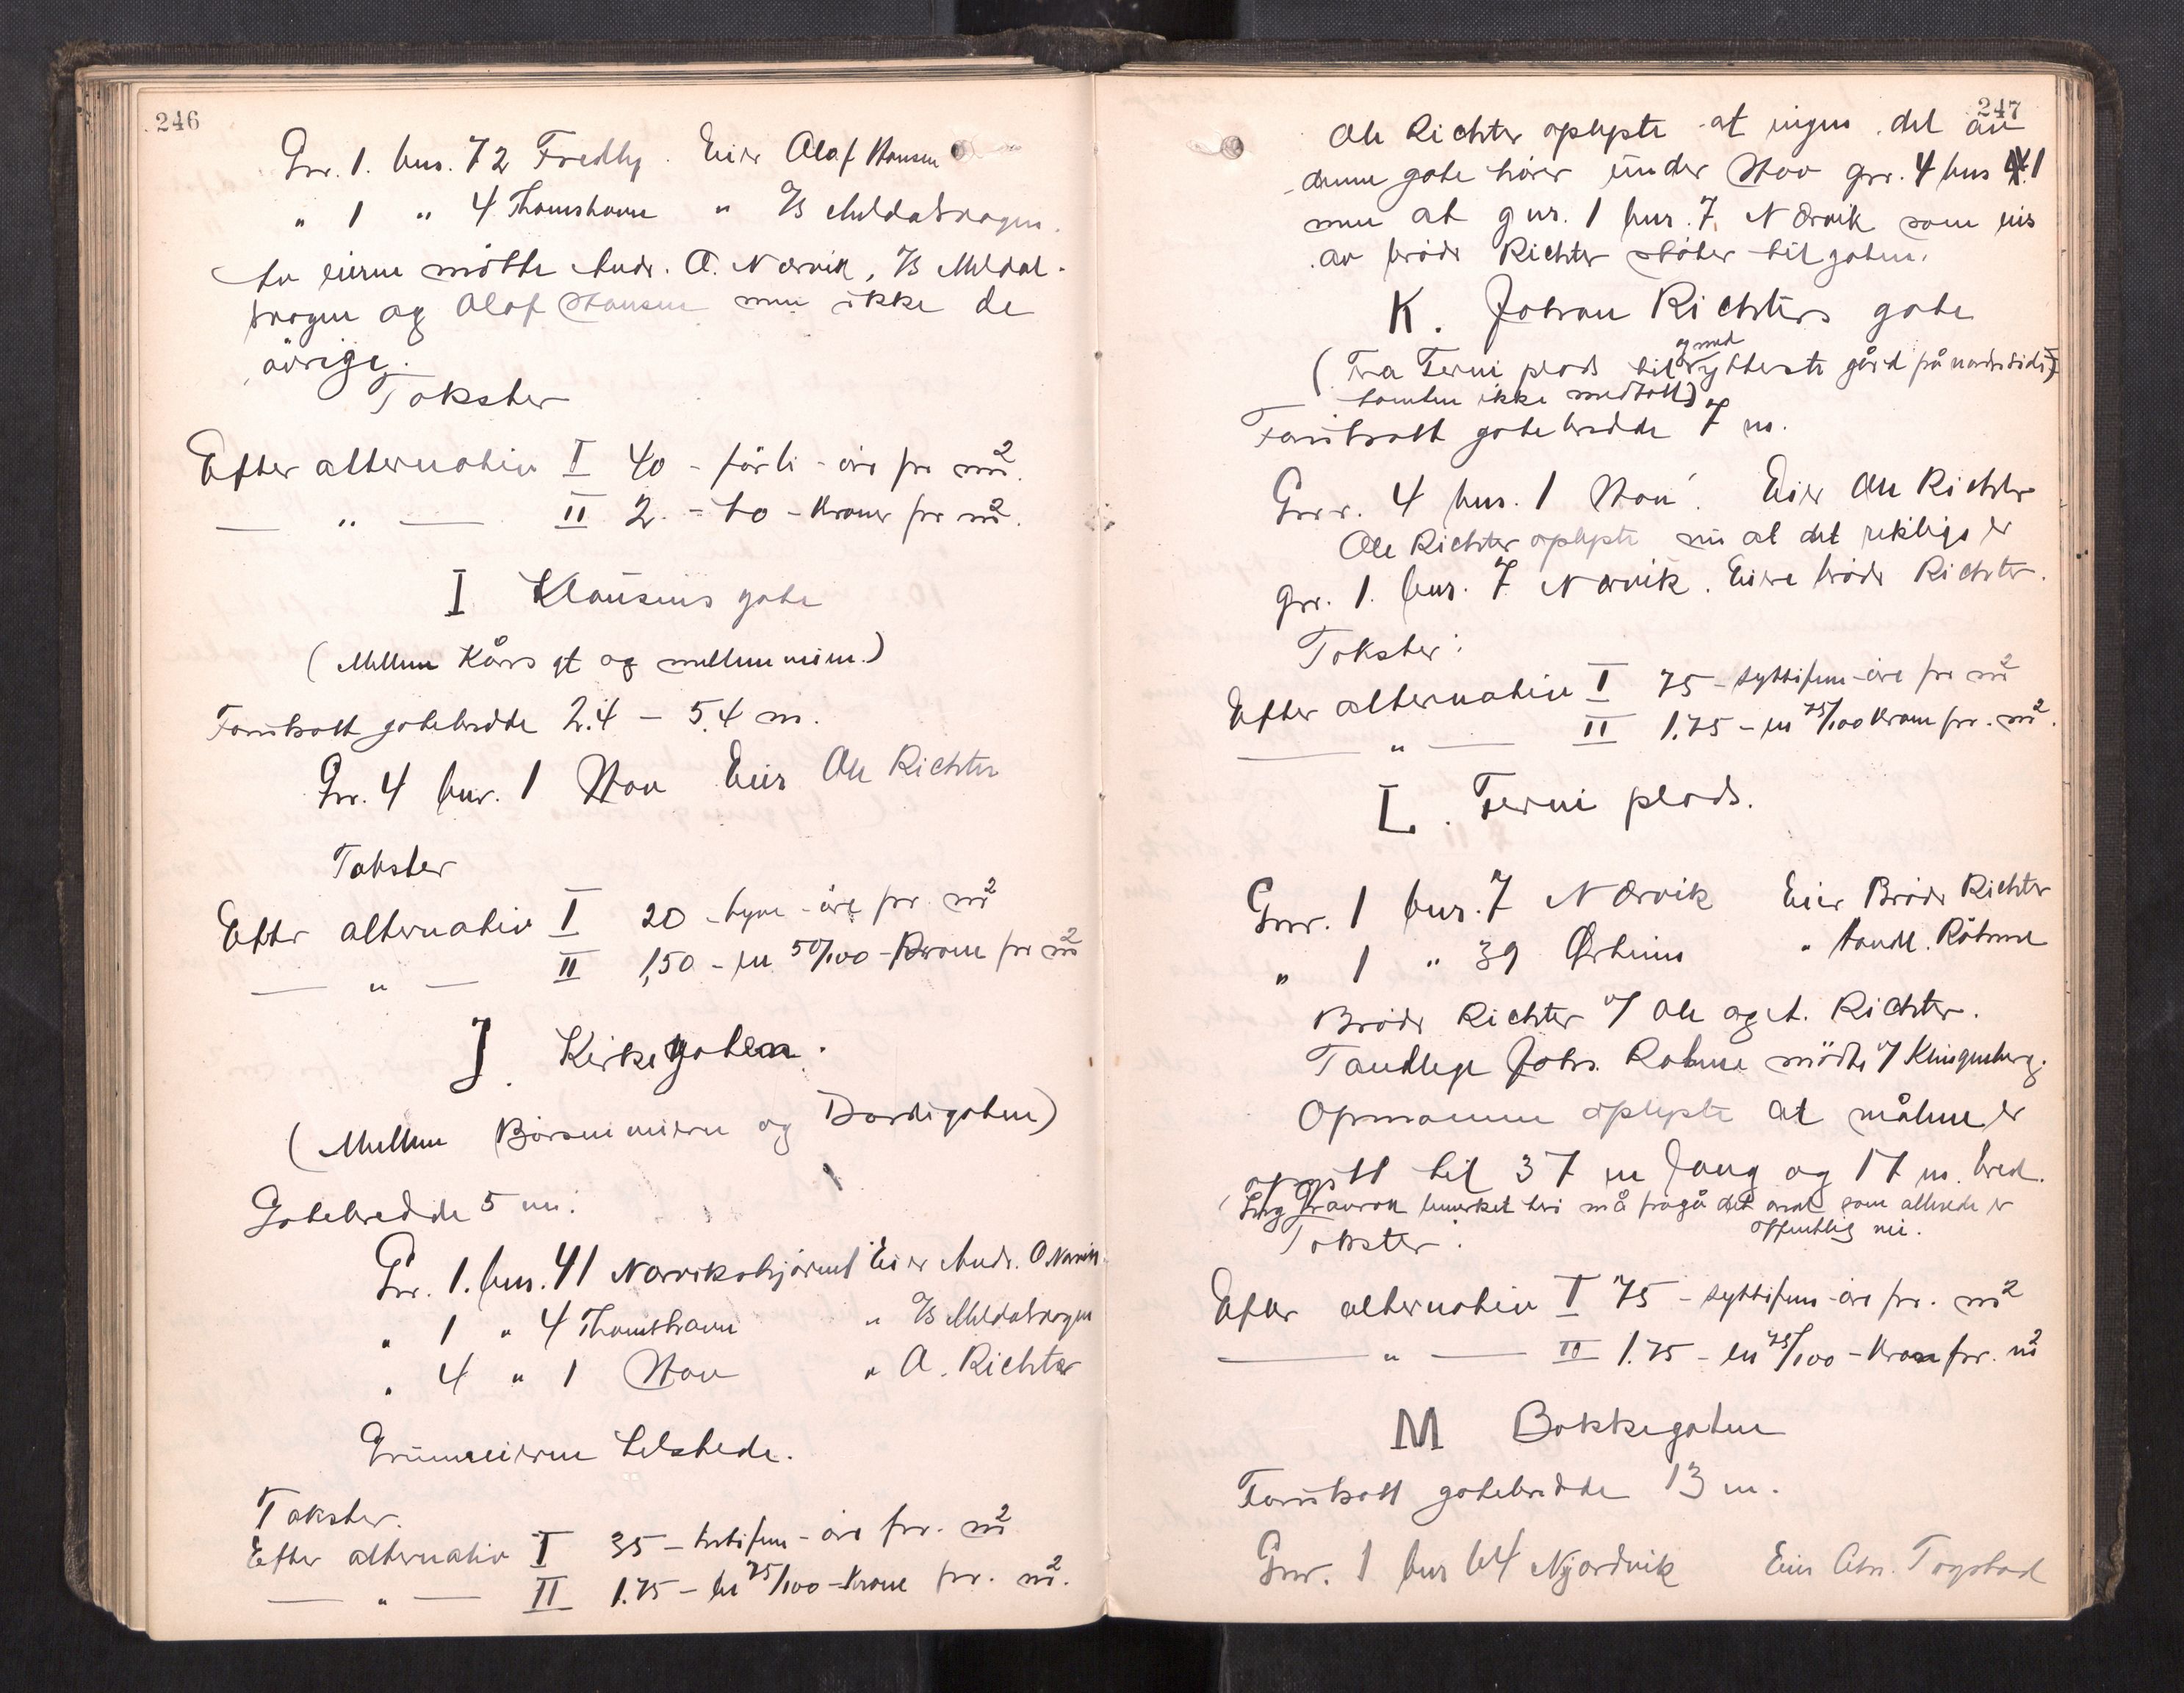 246
Gnr. 1. bnr. 72 Fredly. Eier Olaf Hansen
" 1 " 4 Thomshavn " I/S Meldalskogen.
Av eierne møtte Andr. O. Nervik, I/S Meldal-
skogen og Olaf Hansen men ikke de
øvrige.
Takster
Efter alternativ I 40 -førti - øre pr m².
— " — II 2. - to - kroner pr m².
I Klausens gate
(Mellem Kårs gt og mellemmien.)
Foruttsatt gatebredde 2.4 - 5.4 m.
Gnr. 4 bnr. 1 Hov Eier Ole Richter
Takster
Efter alternativ I 20 - tyve - øre pr. m²
— " — II 1,50 - en 50/100 - krone pr m²
J. Kirkegaten.
(Mellem Børsmien og Dardigaten)
Gatebredde 5 m.
Gnr. 1. bnr. 41 Nervikshjørnet Eier Andr. O. Nervik.
" 1 " 4 Thomshavn " I/S Meldalskogen
" 4 " 1 Hov " O. Richter
Grunneierne tilstede.
Takster.
Efter alternativ I 35 - trettifem - øre pr. m²
— " — II 1.75 - en 75/100 - krone pr. m².
247
Ole Richter oplyste at ingen del av
denne gate hører under Hov gnr. 4 bnr 1
men at gnr. 1 bnr. 7. Nervik som eies
av brødr Richter støter til gaten.
K. Johan Richters gate
(Fra Ferni plads til og med nytterste gård på nordsiden,
tomten ikke medtatt)
Forutsatt gatebredde 7 m.
Gnr. 4 bnr. 1 Hov. Eier Ole Richter
Ole Richter oplyste nu at det riktige er
gnr. 1. bnr. 7 Nervik. Eiere brødr Richter.
Takster:
Efter alternativ I 75 - syttifem - øre pr m²
— " — II 1.75 - en 75/100 krone pr. m².
L. Ferni plads.
Gnr. 1 bnr. 7 Nervik Eier Brødr Richter
" 1 " 39 Ørheim " tandl. Røhme
Brødr Richter v/ Ole og A. Richter.
Tandlege Johs. Rohme møtte v/ Klingenberg.
Opmannen oplyste at målene er
opgitt til 37 m lang og 17 m. bred.
Ing. bemerket heri må fragå det areal som allerede er
offentlig vei.
Takster:
Efter alternativ I 75 - syttifem - øre pr. m²
— " — II 1.75 - en 75/100 - krone pr. m²
M Bakkegaten
Forutsatt gatebredde 13 m.
Gnr. 1 bnr 64 Njordvik Eier Chr. Togstad